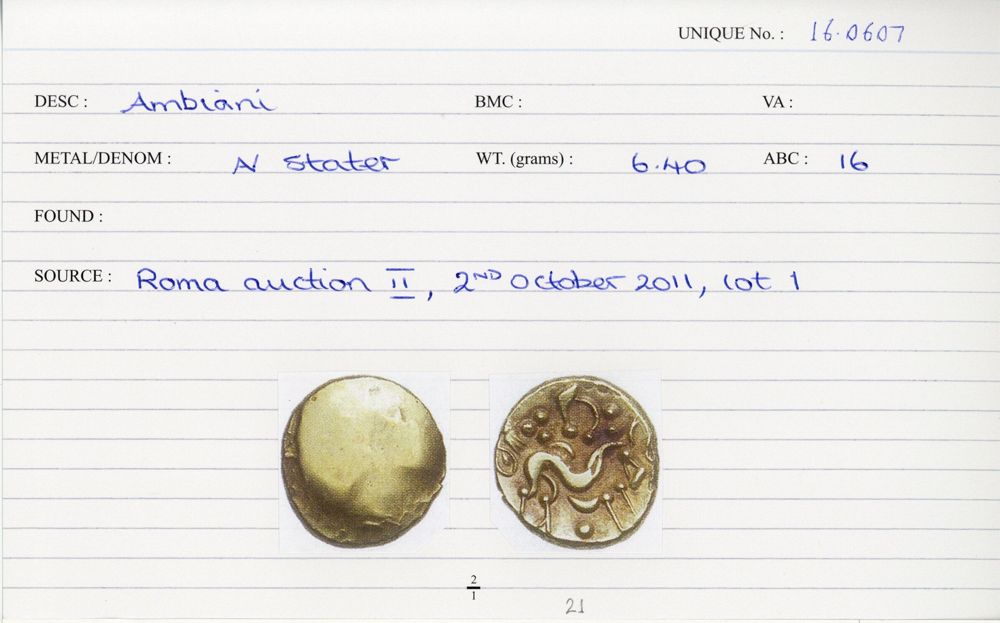 UNIQUE No. : 16.0607
DESC : Ambiani BMC : VA :
METAL/DENOM : N stater WT. (grams) : 6.40 ABC : 16
FOUND :
SOURCE : Roma auction II, 2ND October 2011, lot 1
2
1
21